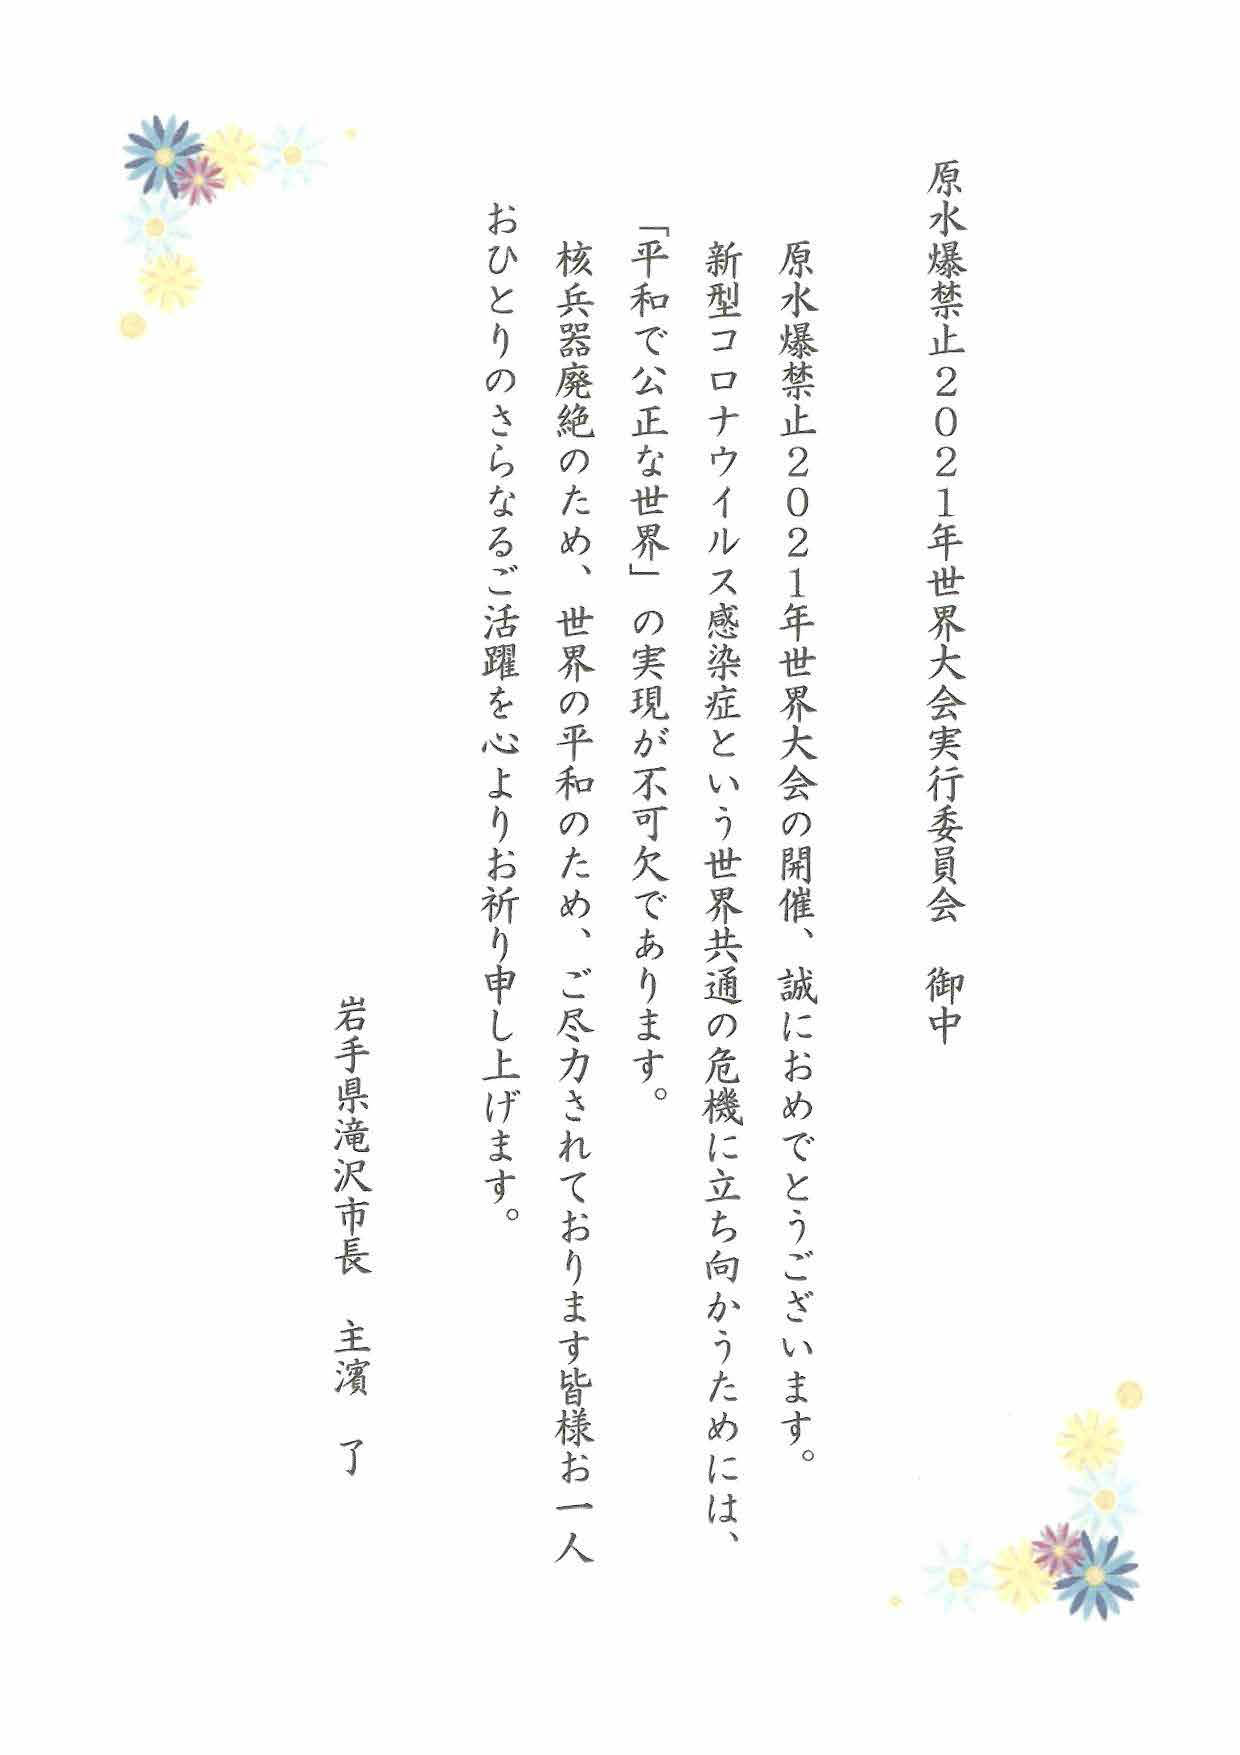 原水爆禁止２０２１年世界大会実行委員会　御中
原水爆禁止２０２１年世界大会の開催、誠におめでとうございます。
新型コロナウイルス感染症という世界共通の危機に立ち向かうためには、
「平和で公正な世界」の実現が不可欠であります。
核兵器廃絶のため、世界の平和のため、ご尽力されております皆様お一人
おひとりのさらなるご活躍を心よりお祈り申し上げます。
岩手県滝沢市長　主濱　了